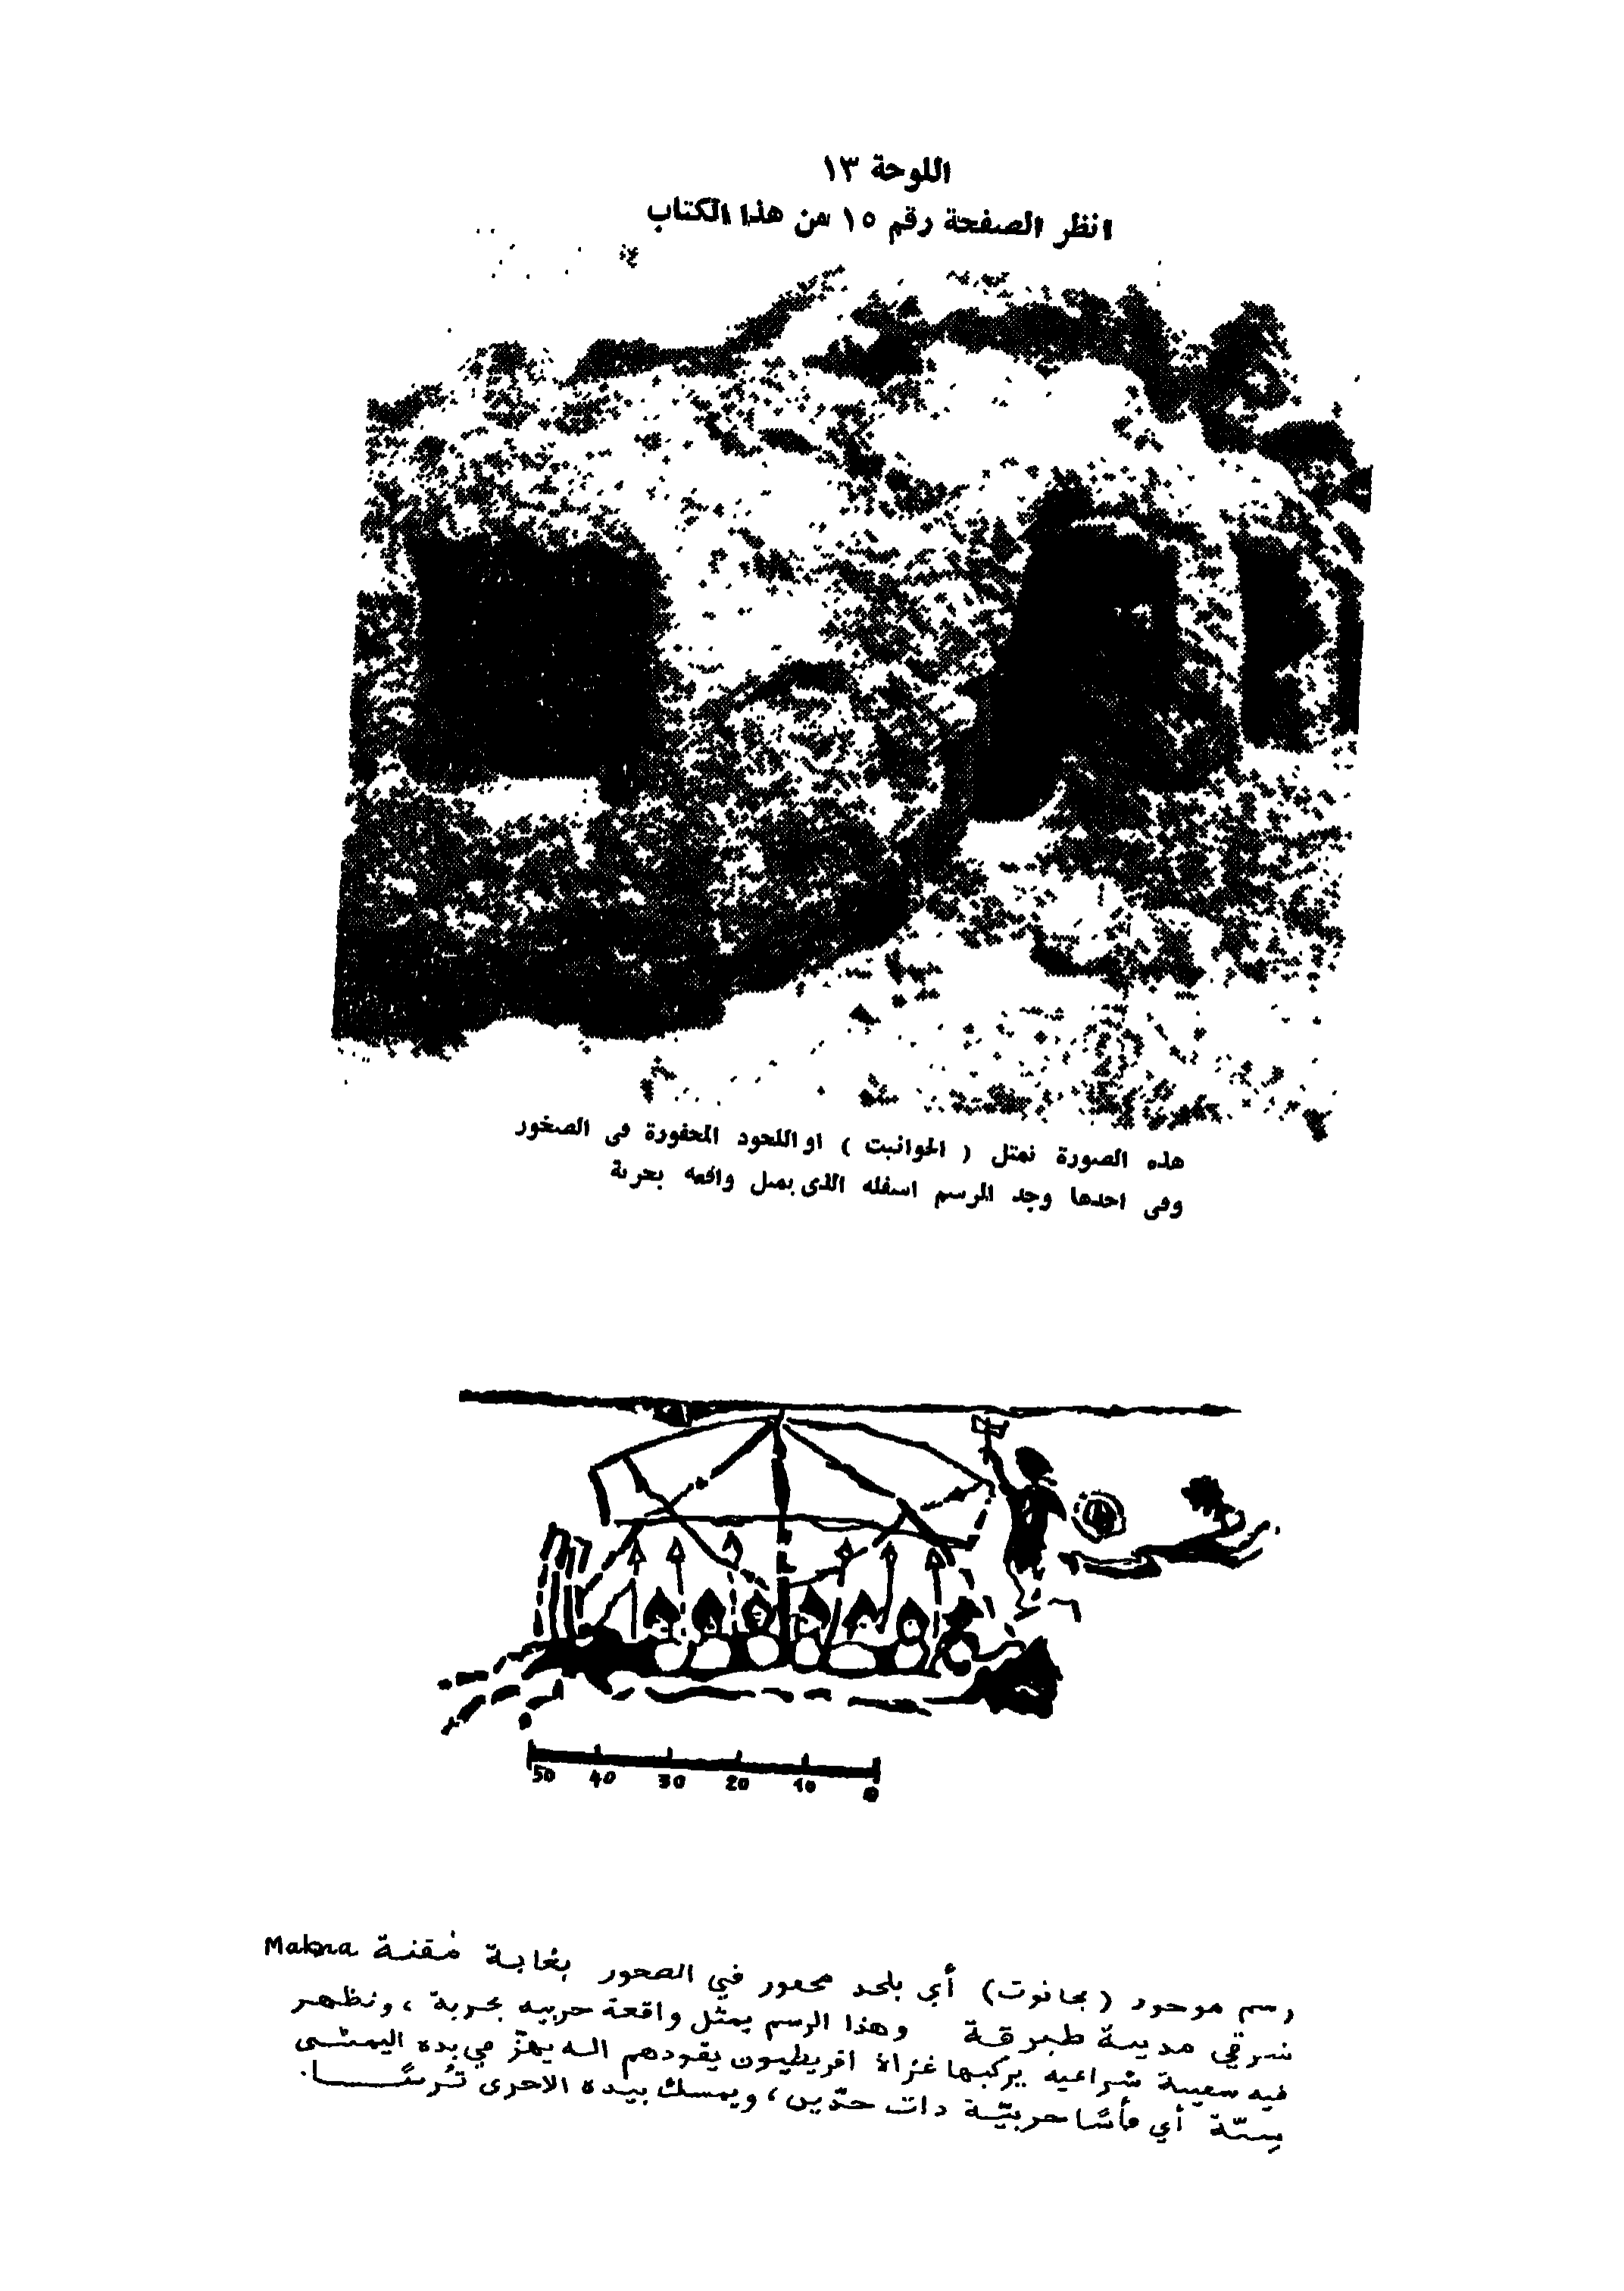 اللوحة ١٣
انظر الصفحة رقم ١٥ من هذا الكتاب
هذه الصورة تمثل ( الحوانيت ) او اللحود المحفورة فى الصخور
وفى احدها وجد الرسم اسفله الذى يمثل واقعه بحرية
50 40 30 20 10 0
رسم موجود (بحانوت) أي بلحد محفور في الصخور بغابة مُقنة Makna
شرقي مدينة طبرقة وهذا الرسم يمثل واقعة حربيه بحرية ، ونظهر
فيه سفينة شراعيه يركبها غزاة اقريطيون يقودهم اله يهزّ في يده اليمنى
بِسنّة أي فأسًا حربيّة ذات حدّين ، ويمسك بيده الاخرى تُرسًا .